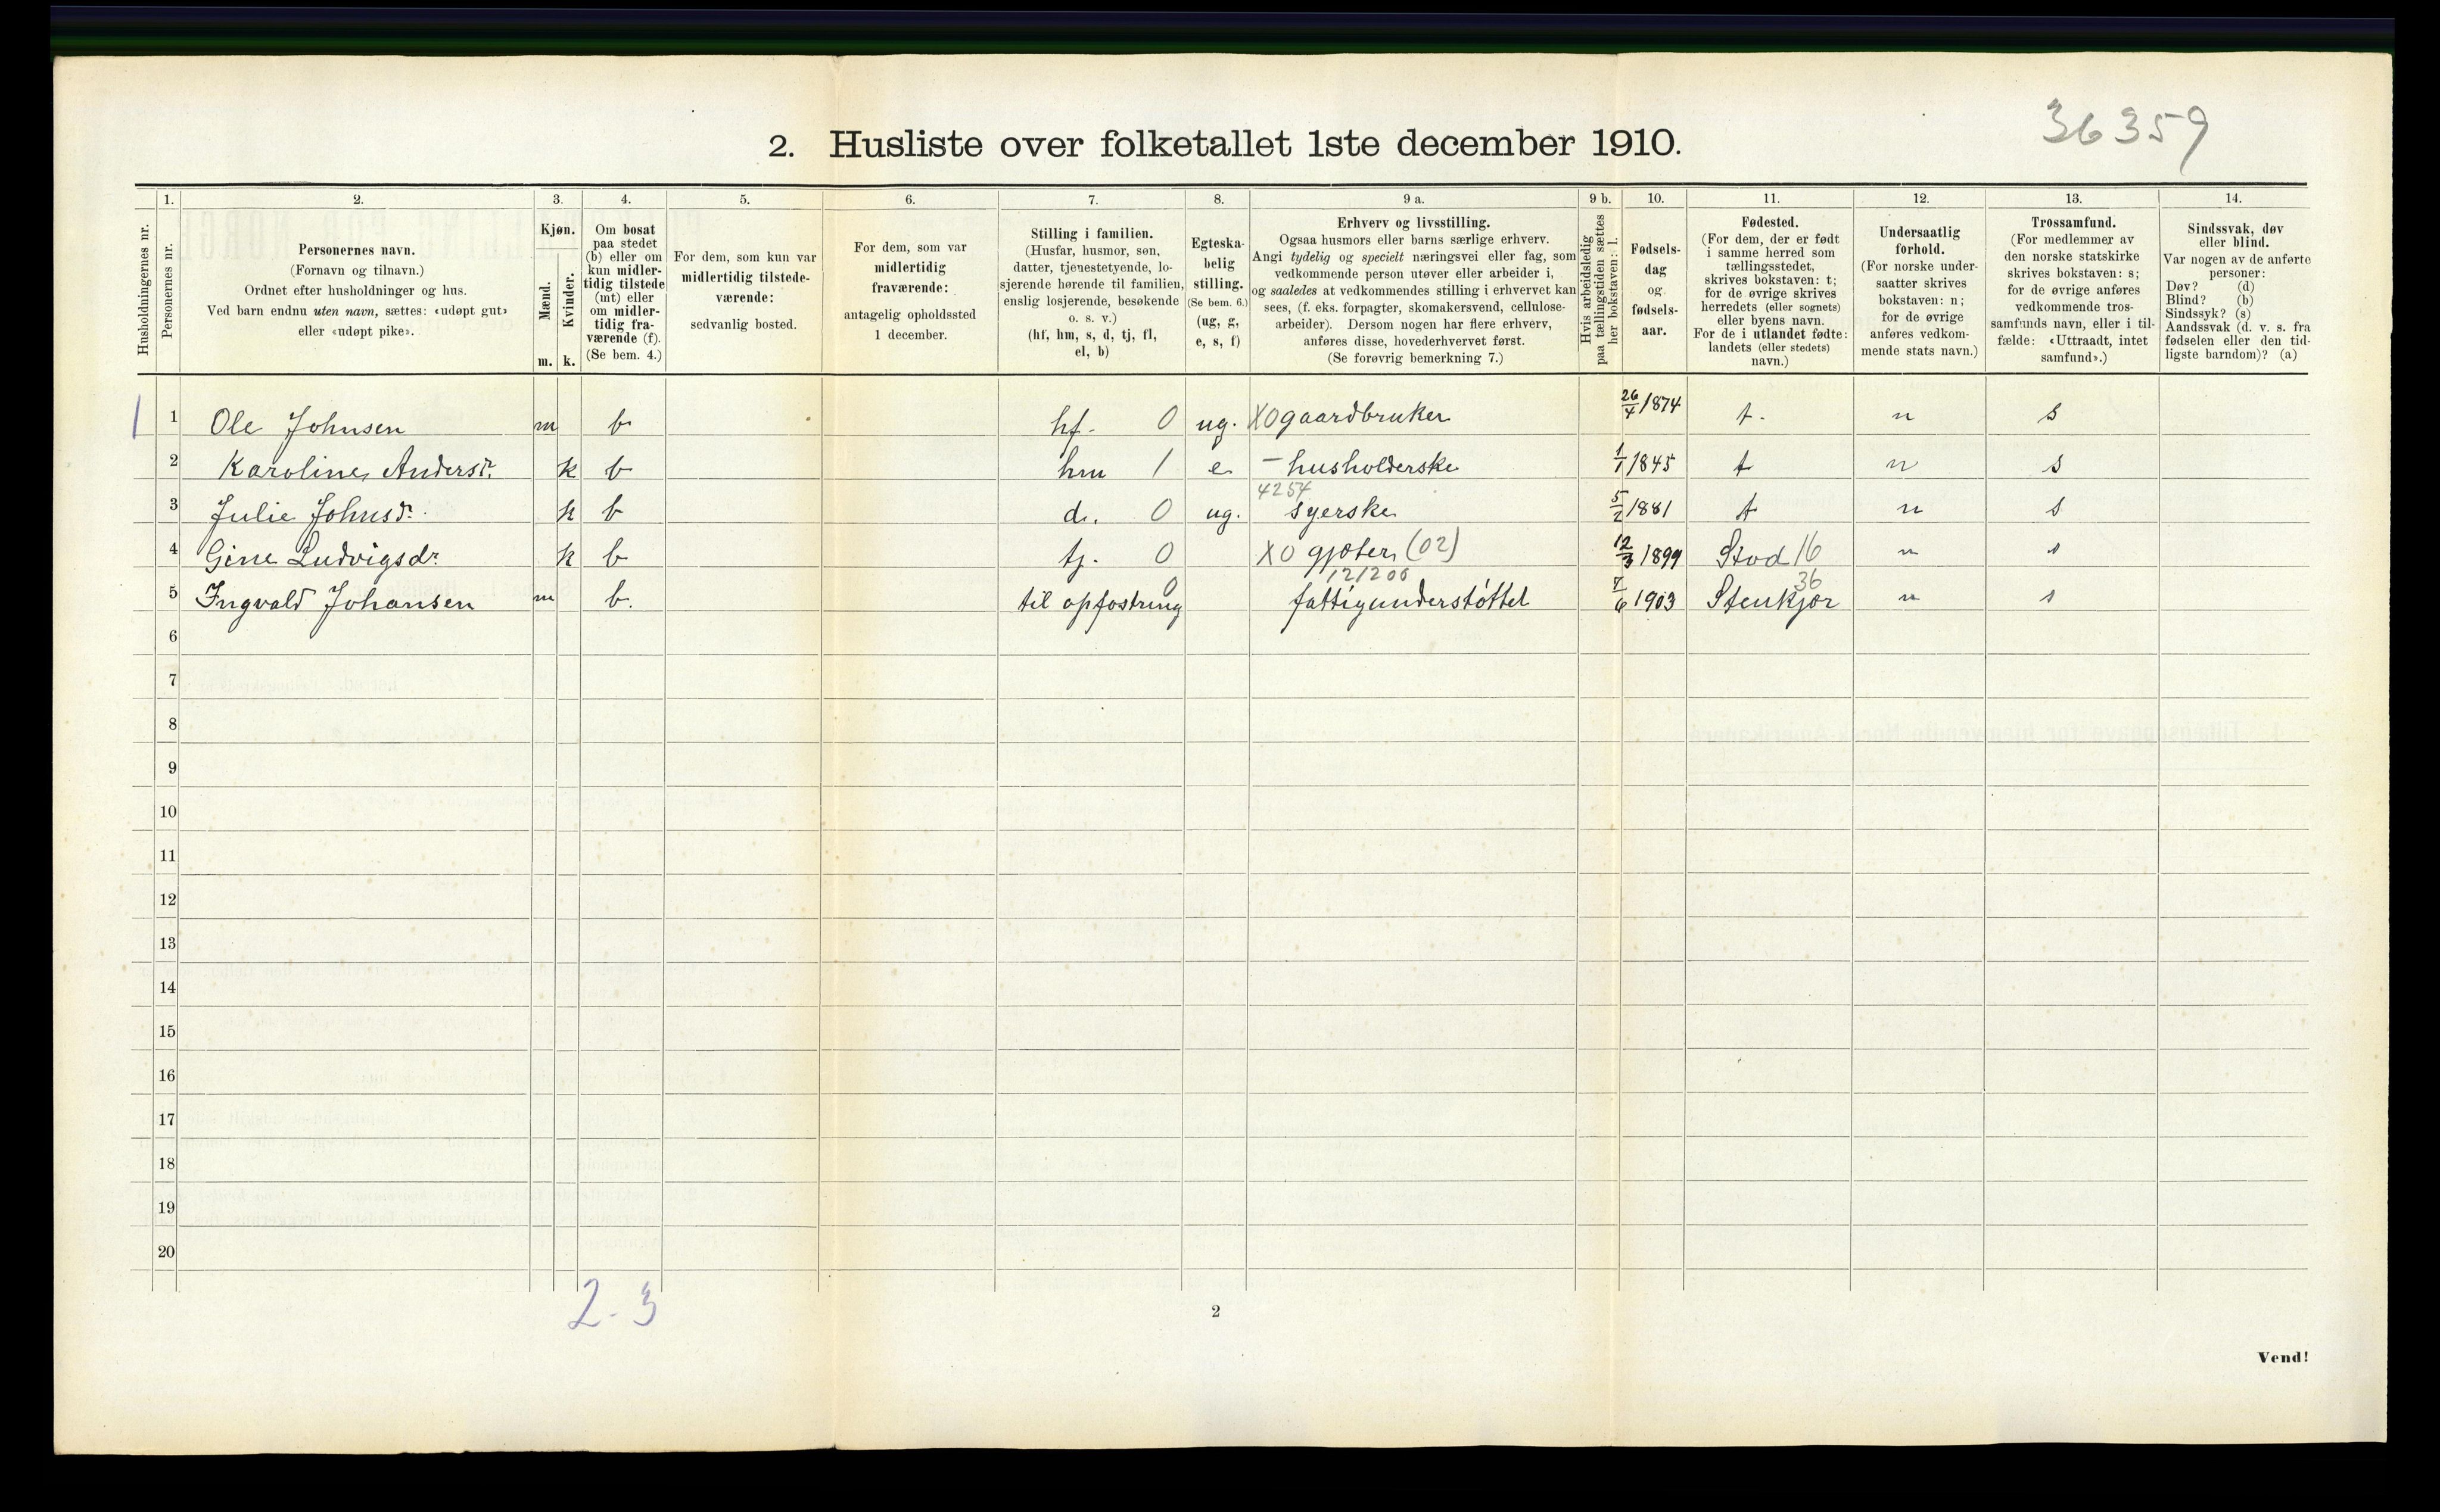 36359
2. Husliste over folketallet 1ste december 1910.
Husholdningernes nr.
1.
Personernes nr.
2.
Personernes navn.
(Fornavn og tilnavn.)
Ordnet efter husholdninger og hus.
Ved barn endnu uten navn, sættes: «udøpt gut»
eller «udøpt pike».
3.
Kjøn.
Mænd.
Kvinder.
m. k.
4.
Om bosat
paa stedet
(b) eller om
kun midler-
tidig tilstede
(mt) eller
om midler-
tidig fra-
værende (f).
(Se bem. 4.)
5.
For dem, som kun var
midlertidig tilstede-
værende:
sedvanlig bosted.
6.
For dem, som var
midlertidig
fraværende:
antagelig opholdssted
1 december.
7.
Stilling i familien.
(Husfar, husmor, søn,
datter, tjenestetyende, lo-
sjerende hørende til familien,
enslig losjerende, besøkende
o. s. v.)
(hf, hm, s, d, tj, fl,
el, b)
8.
Egteska-
belig
stilling.
(Se bem. 6.)
(ug, g,
e, s, f)
9 a.
Erhverv og livsstilling.
Ogsaa husmors eller barns særlige erhverv.
Angi tydelig og specielt næringsvei eller fag, som
vedkommende person utøver eller arbeider i,
og saaledes at vedkommendes stilling i erhvervet kan
sees, (f. eks. forpagter, skomakersvend, cellulose-
arbeider). Dersom nogen har flere erhverv,
anføres disse, hovederhvervet først.
(Se forøvrig bemerkning 7.)
9 b.
Hvis arbeidsledig
paa tællingstiden sættes
her bokstaven: l.
10.
Fødsels-
dag
og
fødsels-
aar.
11.
Fødested.
(For dem, der er født
i samme herred som
tællingsstedet,
skrives bokstaven: t;
for de øvrige skrives
herredets (eller sognets)
eller byens navn.
For de i utlandet fødte:
landets (eller stedets)
navn.)
12.
Undersaatlig
forhold.
(For norske under-
saatter skrives
bokstaven: n;
for de øvrige
anføres vedkom-
mende stats navn.)
13.
Trossamfund.
(For medlemmer av
den norske statskirke
skrives bokstaven: s;
for de øvrige anføres
vedkommende tros-
samfunds navn, eller i til-
fælde: «Uttraadt, intet
samfund».)
14.
Sindssvak, døv
eller blind.
Var nogen av de anførte
personer:
Døv? (d)
Blind? (b)
Sindssyk? (s)
Aandssvak (d. v. s. fra
fødselen eller den tid-
ligste barndom)? (a)
1 1 Ole Johnsen m b hf. 0 ug. X0 gaardbruker 26/4 1874 t. n s
2 Karoline Andersd. k b hm 1 e - husholderske 1/1 1845 t n s
4254
3 Julie Johnsd. k b d. 0 ug. syerske 5/2 1881 t n s
4 Gine Ludvigsdr. k b tj. 0 X0 gjæter (02) 12/3 1899 Stod 16 n s
121200 36
5 Ingvald Johansen m b. til opfostring 0 fattigunderstøttet 7/6 1903 Stenkjær n s
6
7
8
9
10
11
12
13
14
15
16
17
18
19
20
2-3
2
Vend!